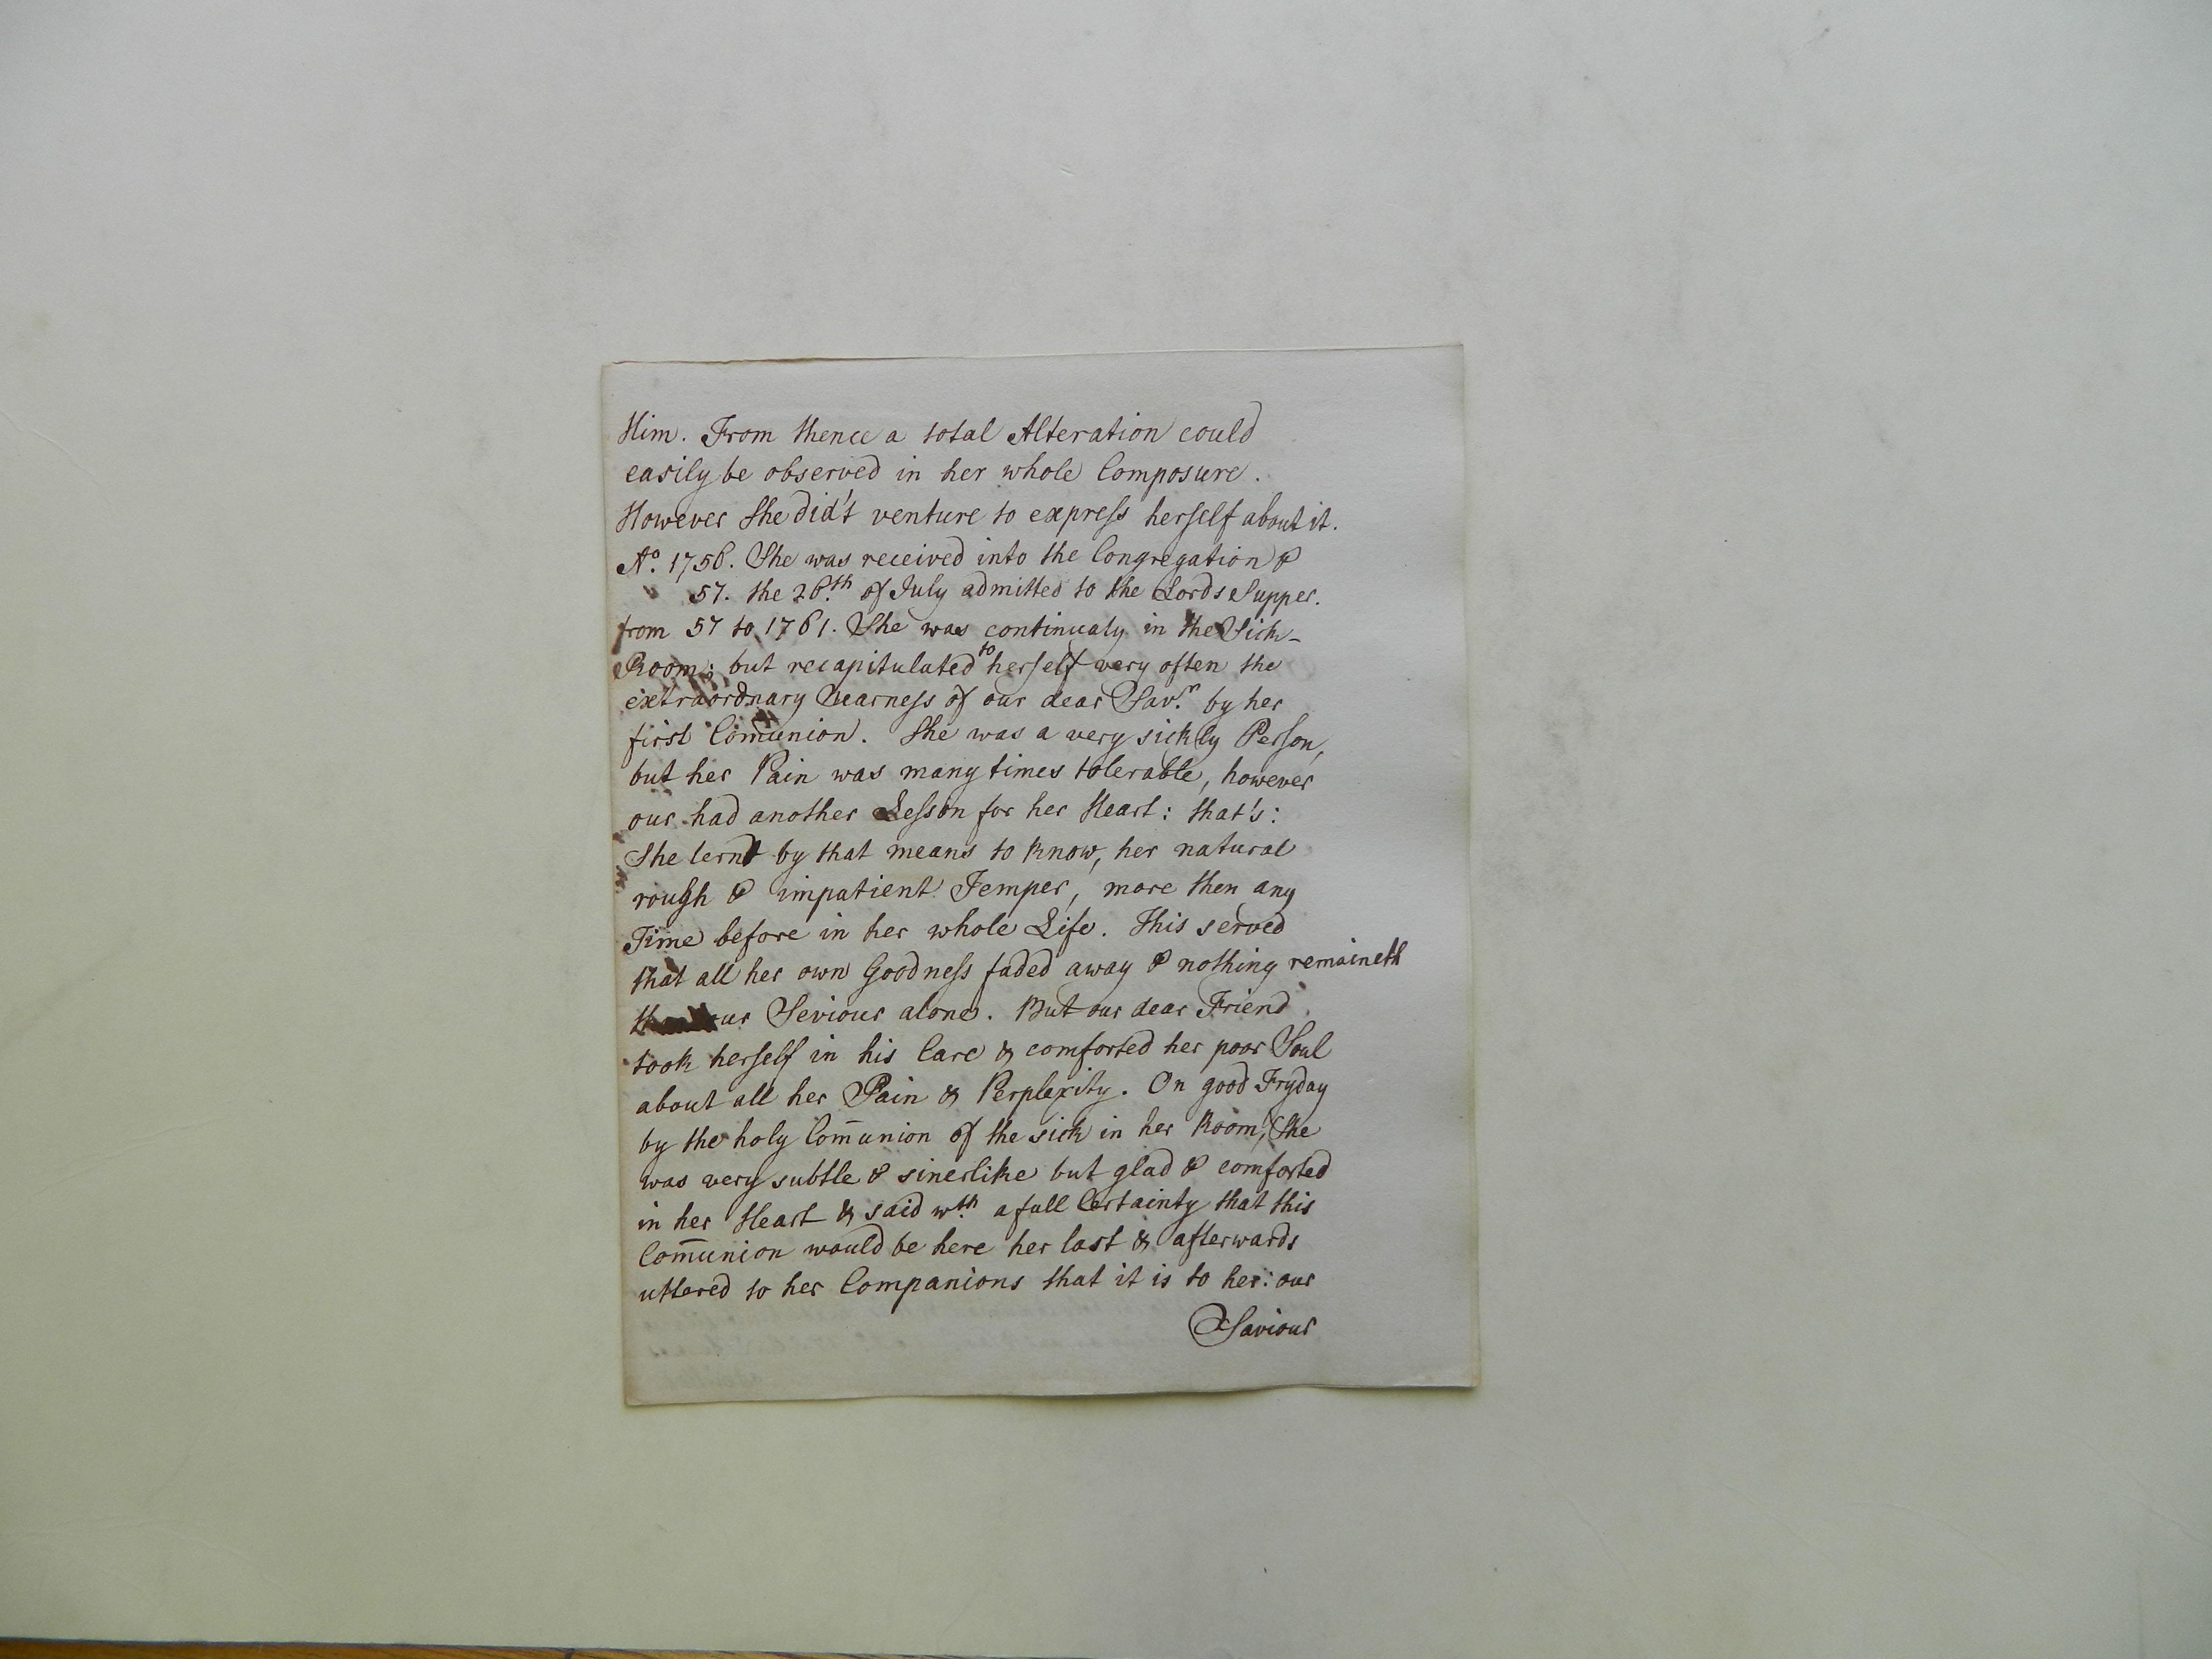 Him. From thence a total Alteration could
easily be observed in her whole Composure.
However She did't venture to express herself about it.
Aº. 1756. She was received into the Congregation &
57. the 26.th of July admitted to the Lords Supper.
from 57 to 1761. She was continualy in the Sick-
Room; but recapitulated to herself very often the
extraordnary Nearness of our dear Sav.r by her
first Com̄union. She was a very sickly Person,
but her Pain was many times tolerable, however
our had another Lesson for her Heart: that's:
She lernt by that means to know, her natural
rough & impatient Temper, more then any
Time before in her whole Life. This served
that all her own Goodness faded away & nothing remaineth
our Seviour alone. But our dear Friend
took herself in his Care & comforted her poor Soul
about all her Pain & Perplexity. On good Fryday
by the holy Com̄union of the sick in her Room, She
was very subtle & sinerlike but glad & comforted
in her Heart & said w.th a full Certainty that this
Com̄union would be here her last & afterwards
uttered to her Companions that it is to her: our
Saviour